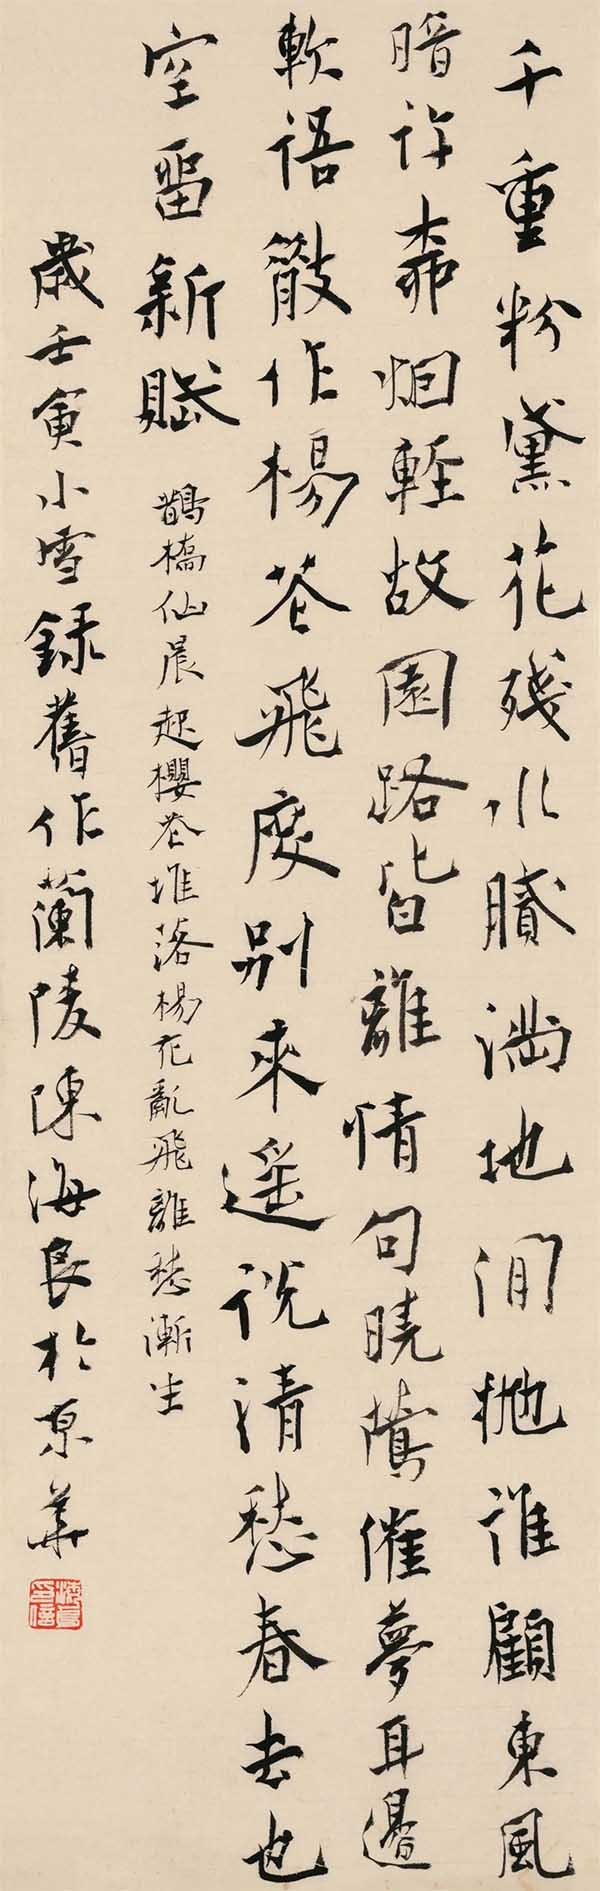 千重粉黛花殘水賸滿地閒拋誰顧東風
暗許烟輕故園路皆離情句曉鶯催夢耳邊
軟語散作楊花飛度別來遙說清愁春去也
空留新賦
鵲橋仙晨起櫻花堆落楊花亂飛離愁漸生
歲壬寅小雪錄舊作蘭陵陳海良於京華